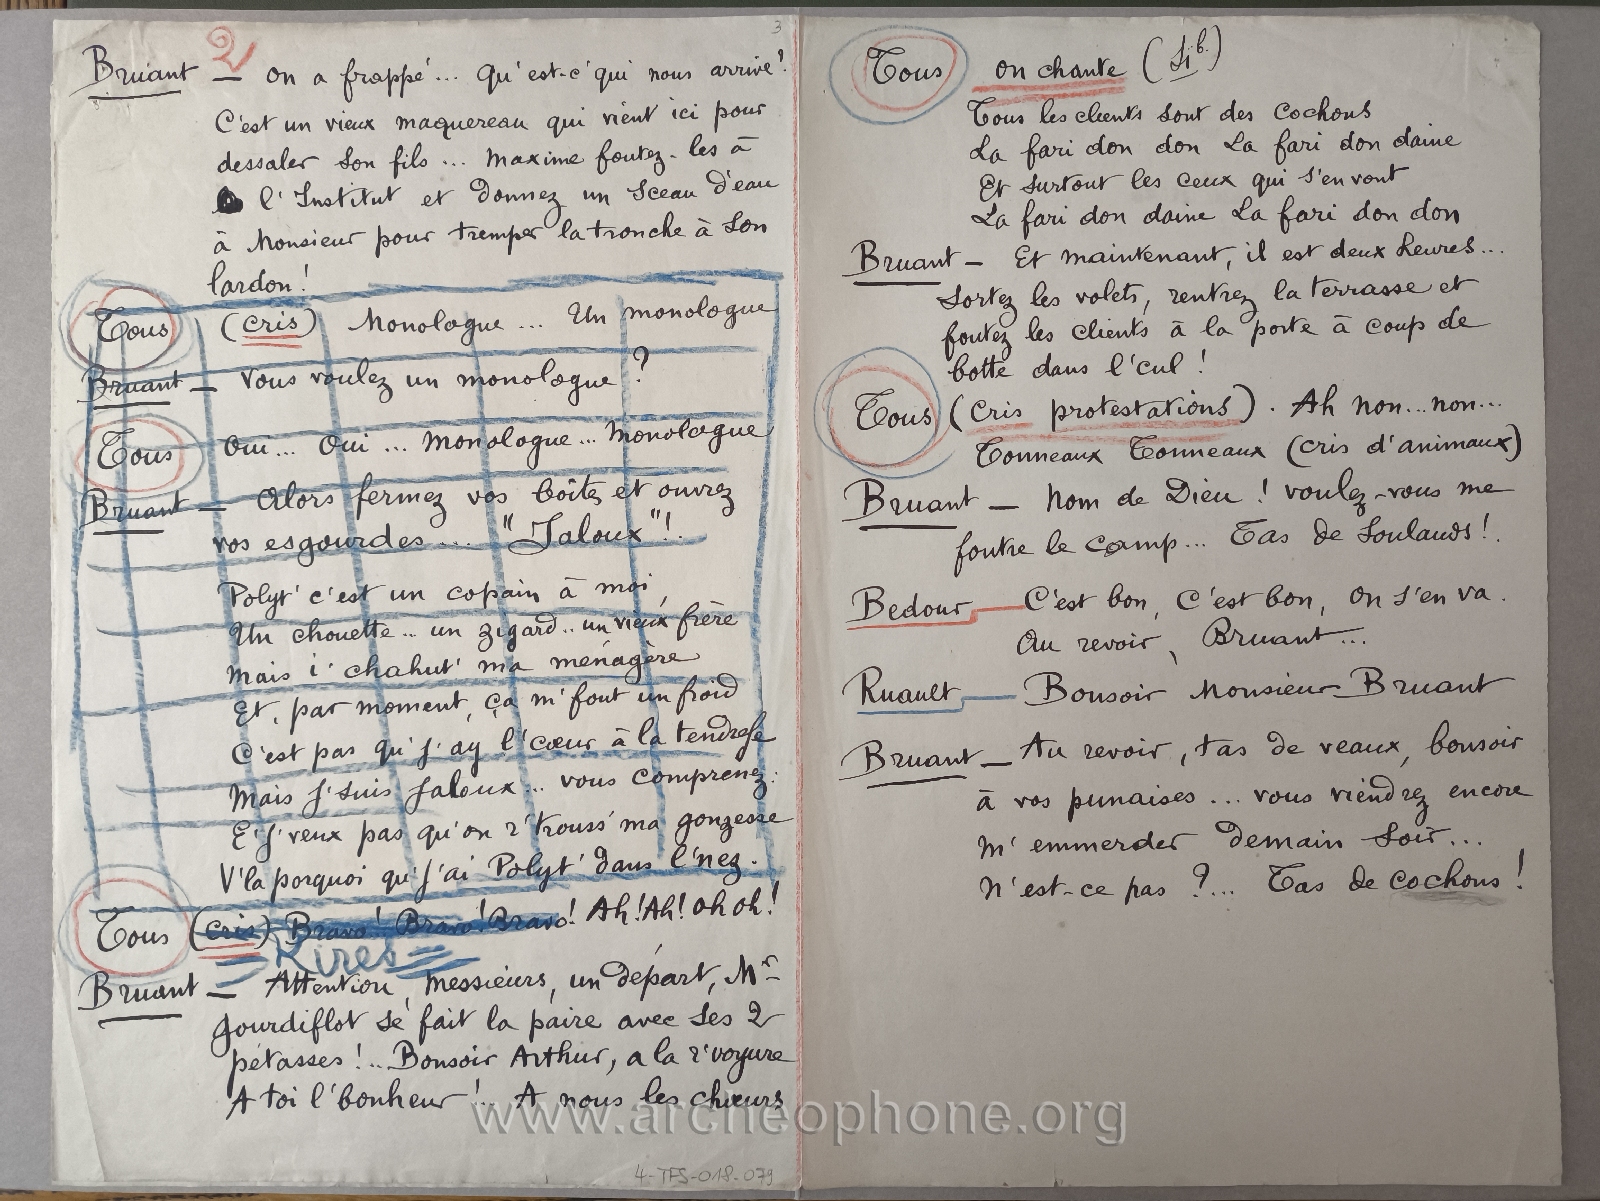 3
2
Bruant — On a frappé... qu'est-c'qui nous arrive?
C'est un vieux maquereau qui vient ici pour
dessaler son fils... Maxime foutez-les à
l'Institut et donnez un sceau d'eau
à Monsieur pour tremper la tronche à son
lardon!
Tous (cris) Monologue... Un monologue
Bruant — Vous voulez un monologue?
Tous Oui... Oui... Monologue... Monologue
Bruant — Alors fermez vos boîtes et ouvrez
vos esgourdes... "Jaloux"!.
Polyt' c'est un copain à moi,
Un chouette.. un zigard.. un vieux frère
Mais i' chahut' ma ménagère
Et, par moment, ça m'fout un froid
C'est pas qu'j'ay l'cœur à la tendresse
Mais j'suis jaloux... vous comprenez:
E'j'veux pas qu'on r'trouss' ma gonzesse
V'la porquoi qu'j'ai Polyt' dans l'nez.
Tous (cris) Bravo! Bravo! Bravo! Ah! Ah! Oh oh!
Rires
Bruant — Attention, Messieurs, un départ, Mr
Gourdiflot se fait la paire avec ses 2
pétasses!.. Bonsoir Arthur, a la r'voyure
A toi l'bonheur!.. A nous les chœurs
4-TFS-018-079
Tous on chante (Si b.)
Tous les clients sont des cochons
La fari don don La fari don daine
Et surtout les ceux qui s'en vont
La fari don daine La fari don don
Bruant — Et maintenant, il est deux heures...
Sortez les volets, rentrez la terrasse et
foutez les clients à la porte à coup de
botte dans l'cul!
Tous (cris protestations). Ah non... non...
Tonneaux Tonneaux (cris d'animaux)
Bruant — Nom de Dieu! voulez-vous me
foutre le camp... Tas de soulauds!.
Bedour — C'est bon, c'est bon, on s'en va.
Au revoir, Bruant...
Ruault — Bonsoir Monsieur Bruant
Bruant — Au revoir, tas de veaux, bonsoir
à vos punaises... vous viendrez encore
m'emmerder demain soir...
N'est-ce pas?... Tas de cochons!
www.archeophone.org